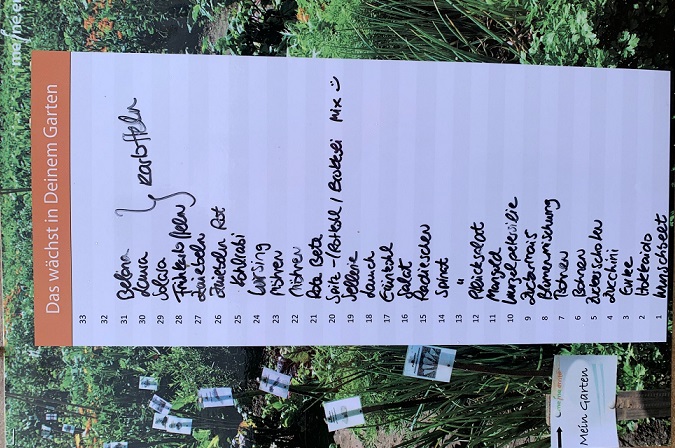 Das wächst in Deinem Garten
33
32
31 Belana
30 Laura
29
Kartoffeln
28 Frühkartoffeln
27 Zwiebeln
26 Zwiebeln Rot
25 Kohlrabi
24 Wirsing
23 Möhren
22 Möhren
21 Rote Bete
20 Spitz-/Rotkohl/Brokkoli Mix :)
19 Sellerie
18 Lauch
17 Grünkohl
16 Salat
15 Radieschen
14 Spinat
13 "
12 Pflücksalat
11 Mangold
10 Wurzelpetersilie
9 Zuckermais
8 Blumenmischung
7 Bohnen
6 Bohnen
5 Zuckerschoten
4 Zucchini
3 Gurke
2 Hokkaido
1 Wunschbeet
Mein Garten